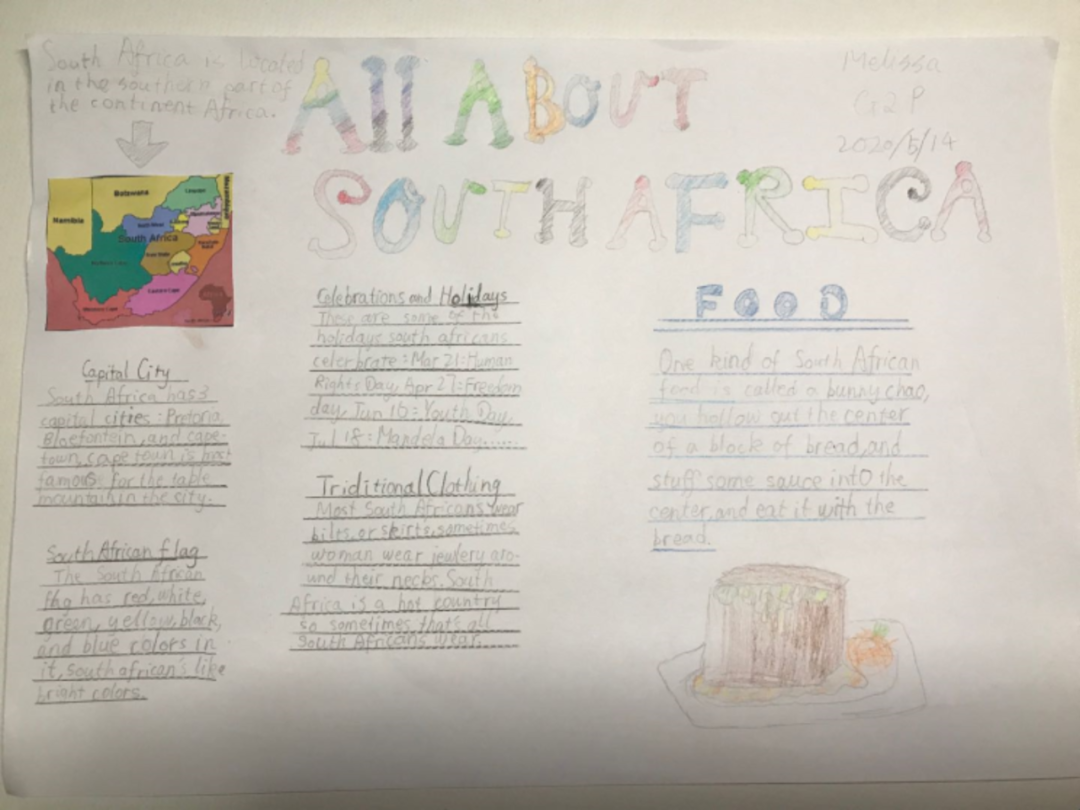 South Africa is located
in the southern part of
the continent Africa.
All ABOUT
SOUTH AFRICA
Melissa
Gr2 P
2020/5/14
Botswana
Namibia
South Africa
Capital City
South Africa has 3
capital cities : Pretoria,
Bloefontein, and cape-
town, cape town is most
famous for the table
mountain in the city.
South African flag
The South African
flag has red, white,
green, yellow, black,
and blue colors in
it, south african's like
bright colors.
Celebrations and Holidays
These are some of the
holidays south africans
celerbrate : Mar 21: Human
Rights Day, Apr 27: Freedom
day, Jun 16: Youth Day,
Jul 18: Mandela Day......
Triditional Clothing
Most South Africans wear
bilts, or skirts, sometimes
woman wear jewlery aro-
und their necks. South
Africa is a hot country
so sometimes that's all
South Africans wear.
FOOD
One kind of South African
food is called a bunny chao,
you hollow out the center
of a block of bread, and
stuff some sauce into the
center, and eat it with the
bread.